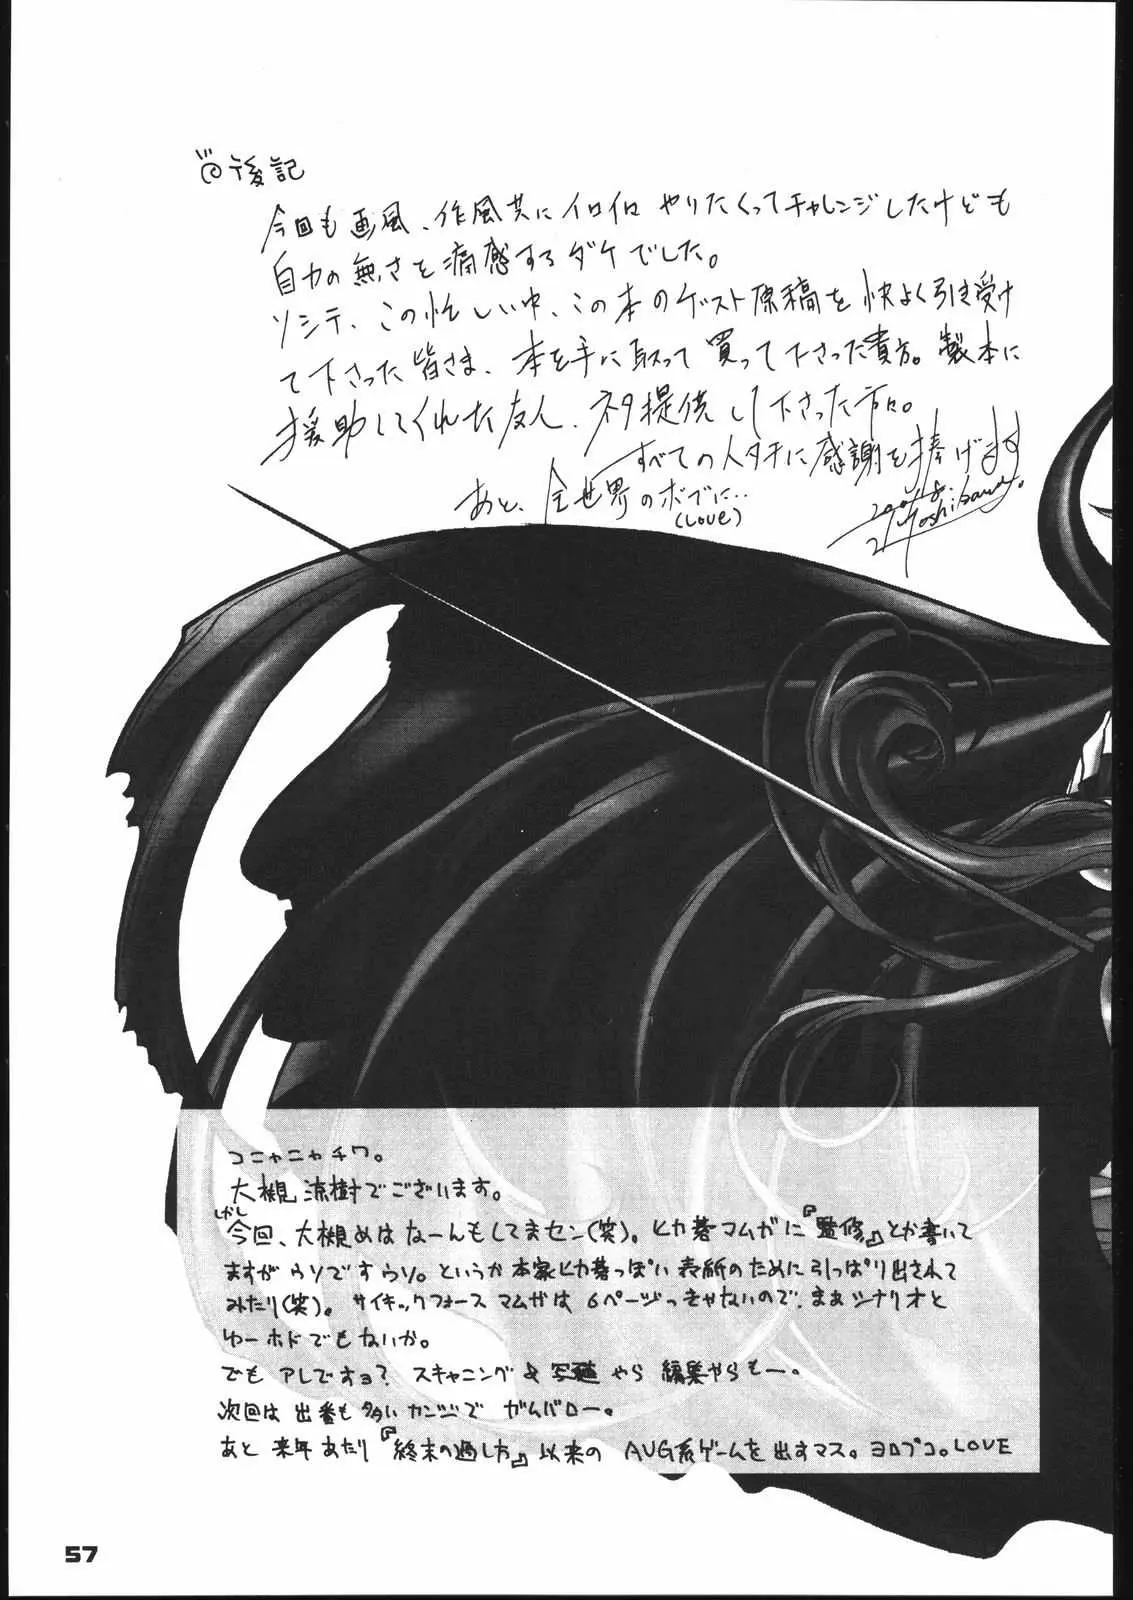 後記
今回も画風、作風共にイロイロやりたくってチャレンジしたけども
自力の無さを痛感するダケでした。
ソシテ、この忙しい中、この本のゲスト原稿を快よく引き受け
て下さった皆さま、本を手に取って買って下さった貴方。製本に
援助してくれた友人、ネタ提供して下さった方々。
すべての人タチに感謝を捧げます
あと、全世界のボブに…
(LOVE)
コニャニャチワ。
大槻涼樹でございます。
今回、大槻めはなーんもしてまセン(笑)。ヒカ碁マムガに『監修』とか書いて
ますがウソですウソ。というか本家ヒカ碁っぽい表紙のために引っぱり出されて
みたり(笑)。サイキックフォースマムガは6ページっきゃないので、まぁシナリオと
ゆーホドでもないか。
でもアレですョ？スキャニング&写植やら編集やらもー。
次回は出番も多いカンジでガムバロー。
あと来年あたり『終末の過し方』以来のAVG系ゲームを出すマス。ヨロプコ。LOVE
57